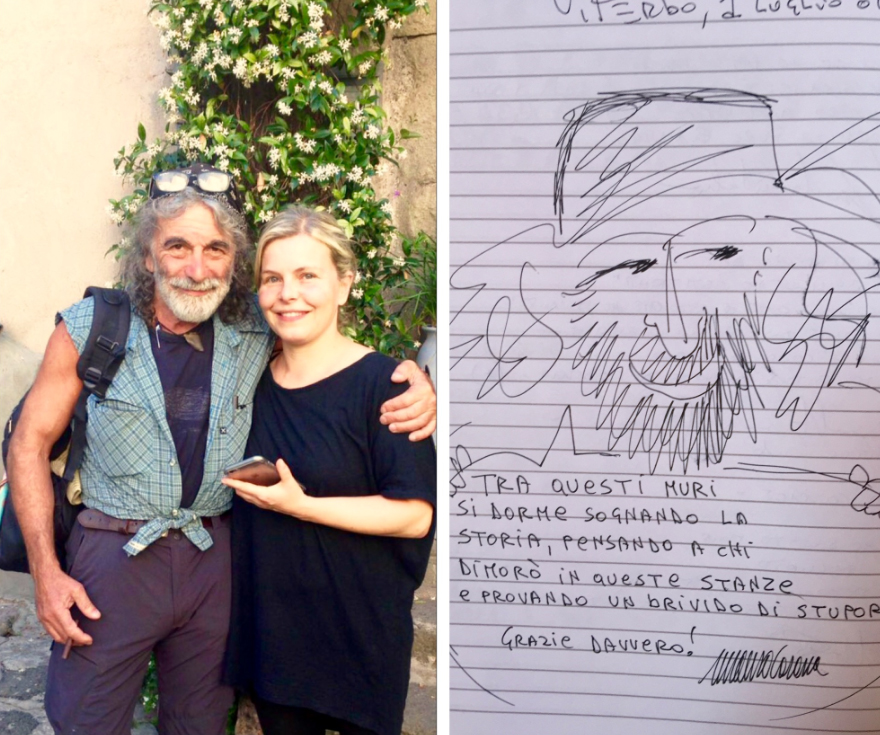 VITERBO, 2 LUGLIO
TRA QUESTI MURI
SI DORME SOGNANDO LA
STORIA, PENSANDO A CHI
DIMORÒ IN QUESTE STANZE
E PROVANDO UN BRIVIDO DI STUPOR
GRAZIE DAVVERO!